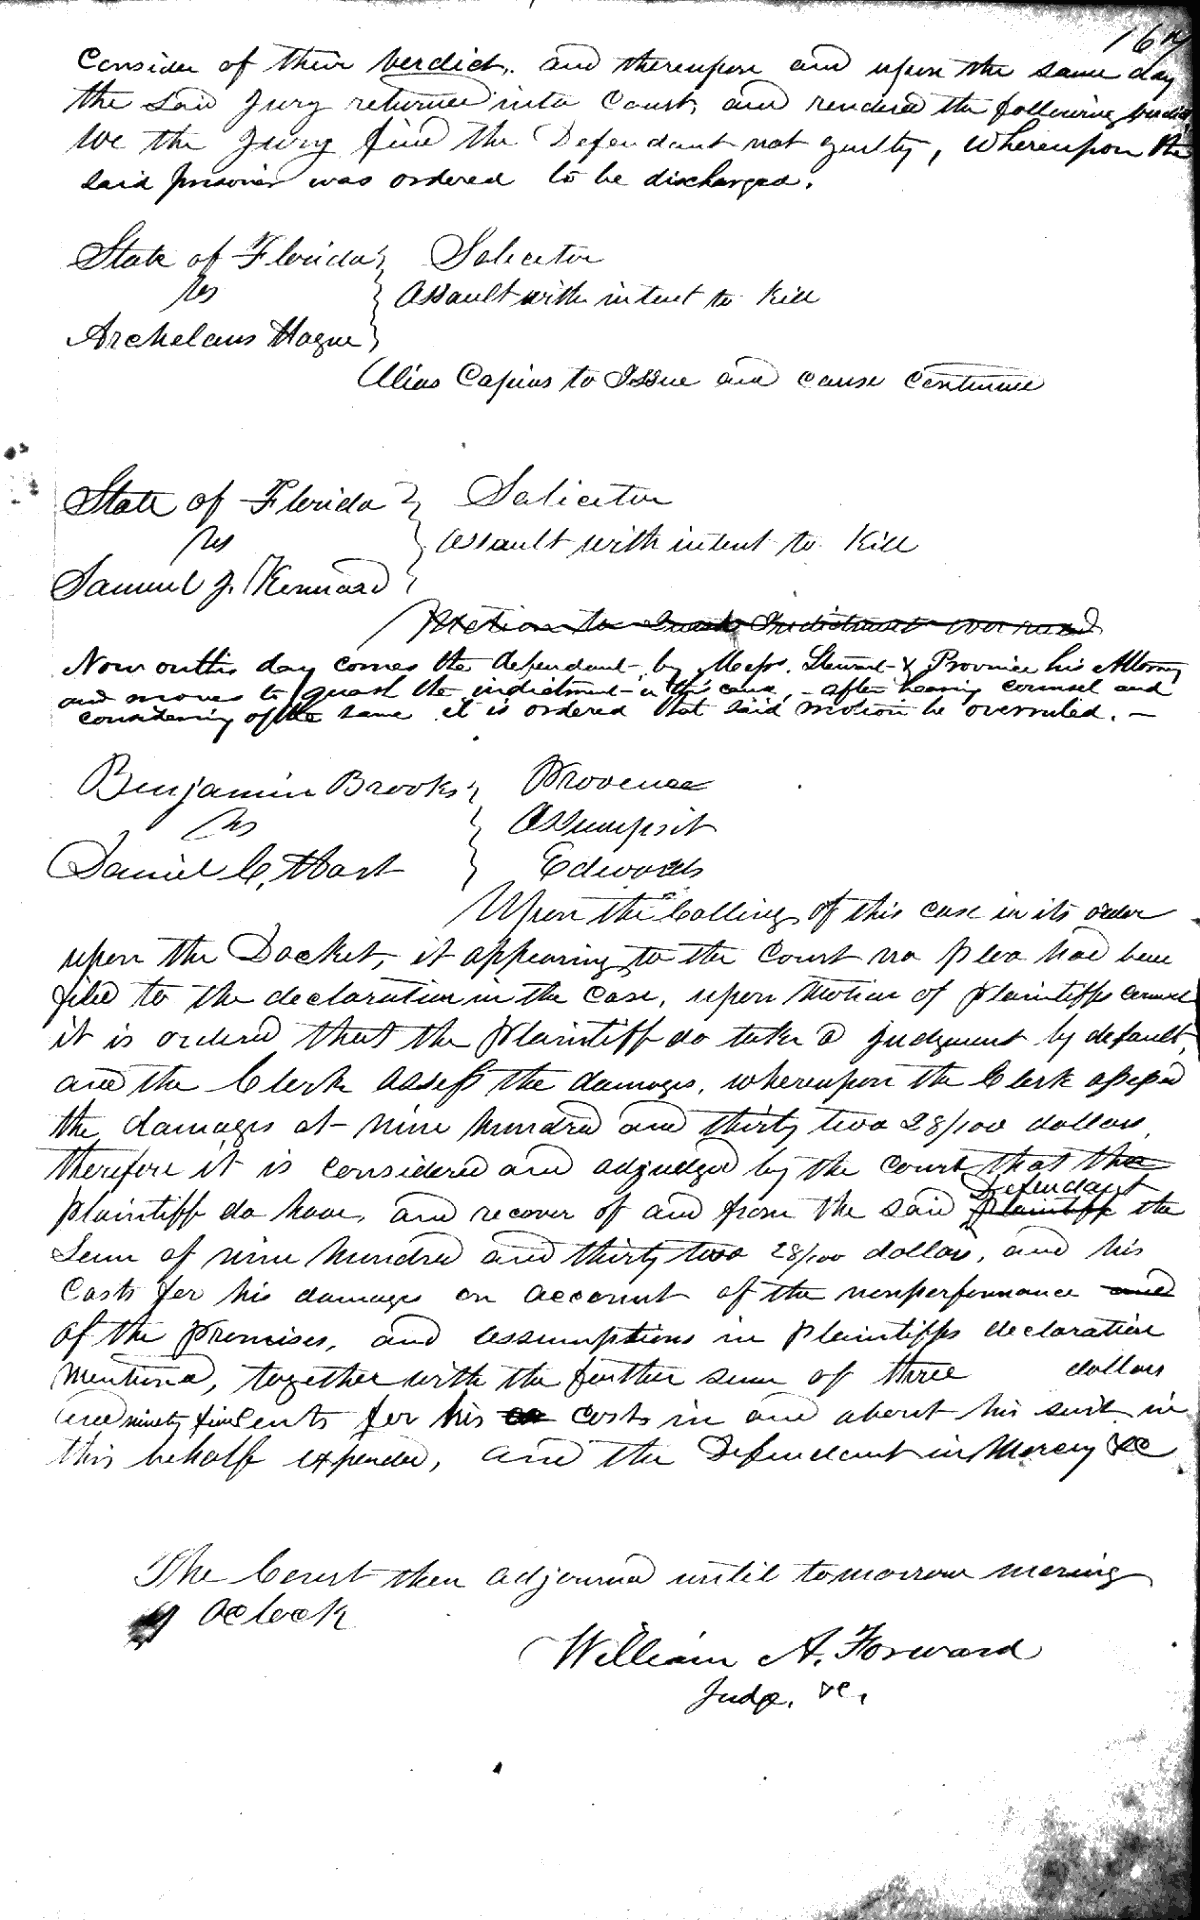 167
Consider of their verdict. and thereupon and upon the same day
the said Jury returned into Court, and rendered the following verdict
We the Jury find the Defendant not guilty, whereupon the
said prisoner was ordered to be discharged.
State of Florida } Solicitor
vs } Assault with intent to Kill
Archelaus Hague }
Alias Capias to Issue and cause continued
State of Florida } Solicitor
vs } Assault with intent to Kill
Samuel J. Kennard }
Motion to Quash Indictment overruled
Now on this day comes the defendant by Messrs. Stewart & Province his Attorney
and moves to quash the indictment in this cause, - after hearing counsel and
considering of the same it is ordered that said motion be overruled. —
Benjamin Brooks } Provence
vs } Assumpsit
Daniel C. Hart } Edwards
Upon the Calling of this case in its order
upon the Docket, it appearing to the Court no plea had been
filed to the declaration in the case, upon Motion of plaintiffs counsel
it is ordered that the plaintiff do take a judgment by default,
and the Clerk assess the damages, whereupon the Clerk assessed
the damages at nine hundred and thirty two 28/100 dollars,
therefore it is considered and adjudged by the court that the
Defendant
plaintiff do have, and recover of and from the said plaintiff the
Sum of nine hundred and thirty two 28/100 dollars, and his
Costs for his damages on account of the nonperformance and
of the promises, and assumptions in plaintiffs declaration
mentioned, together with the further sum of three dollars
and ninety five Cents for his co costs in and about his suit in
this behalf expended, and the Defendant in Mercy &c
The Court then adjourned until tomorrow morning
9 Oclock
William A. Forward
Judge, &c,